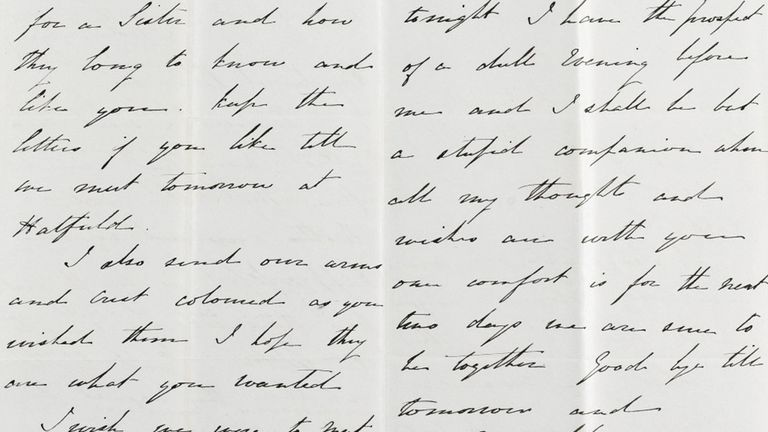 for a Sister and how
they long to know and
like you. keep the
letters if you like till
we meet tomorrow at
Hatfield.
I also send our arms
and crest coloured as you
wished them I hope they
are what you wanted
I wish we were to meet
tonight I have the prospect
of a dull Evening before
me and I shall be but
a stupid companion when
all my thoughts and
wishes are with you
one comfort is for the next
two days we are sure to
be together Good bye till
tomorrow and